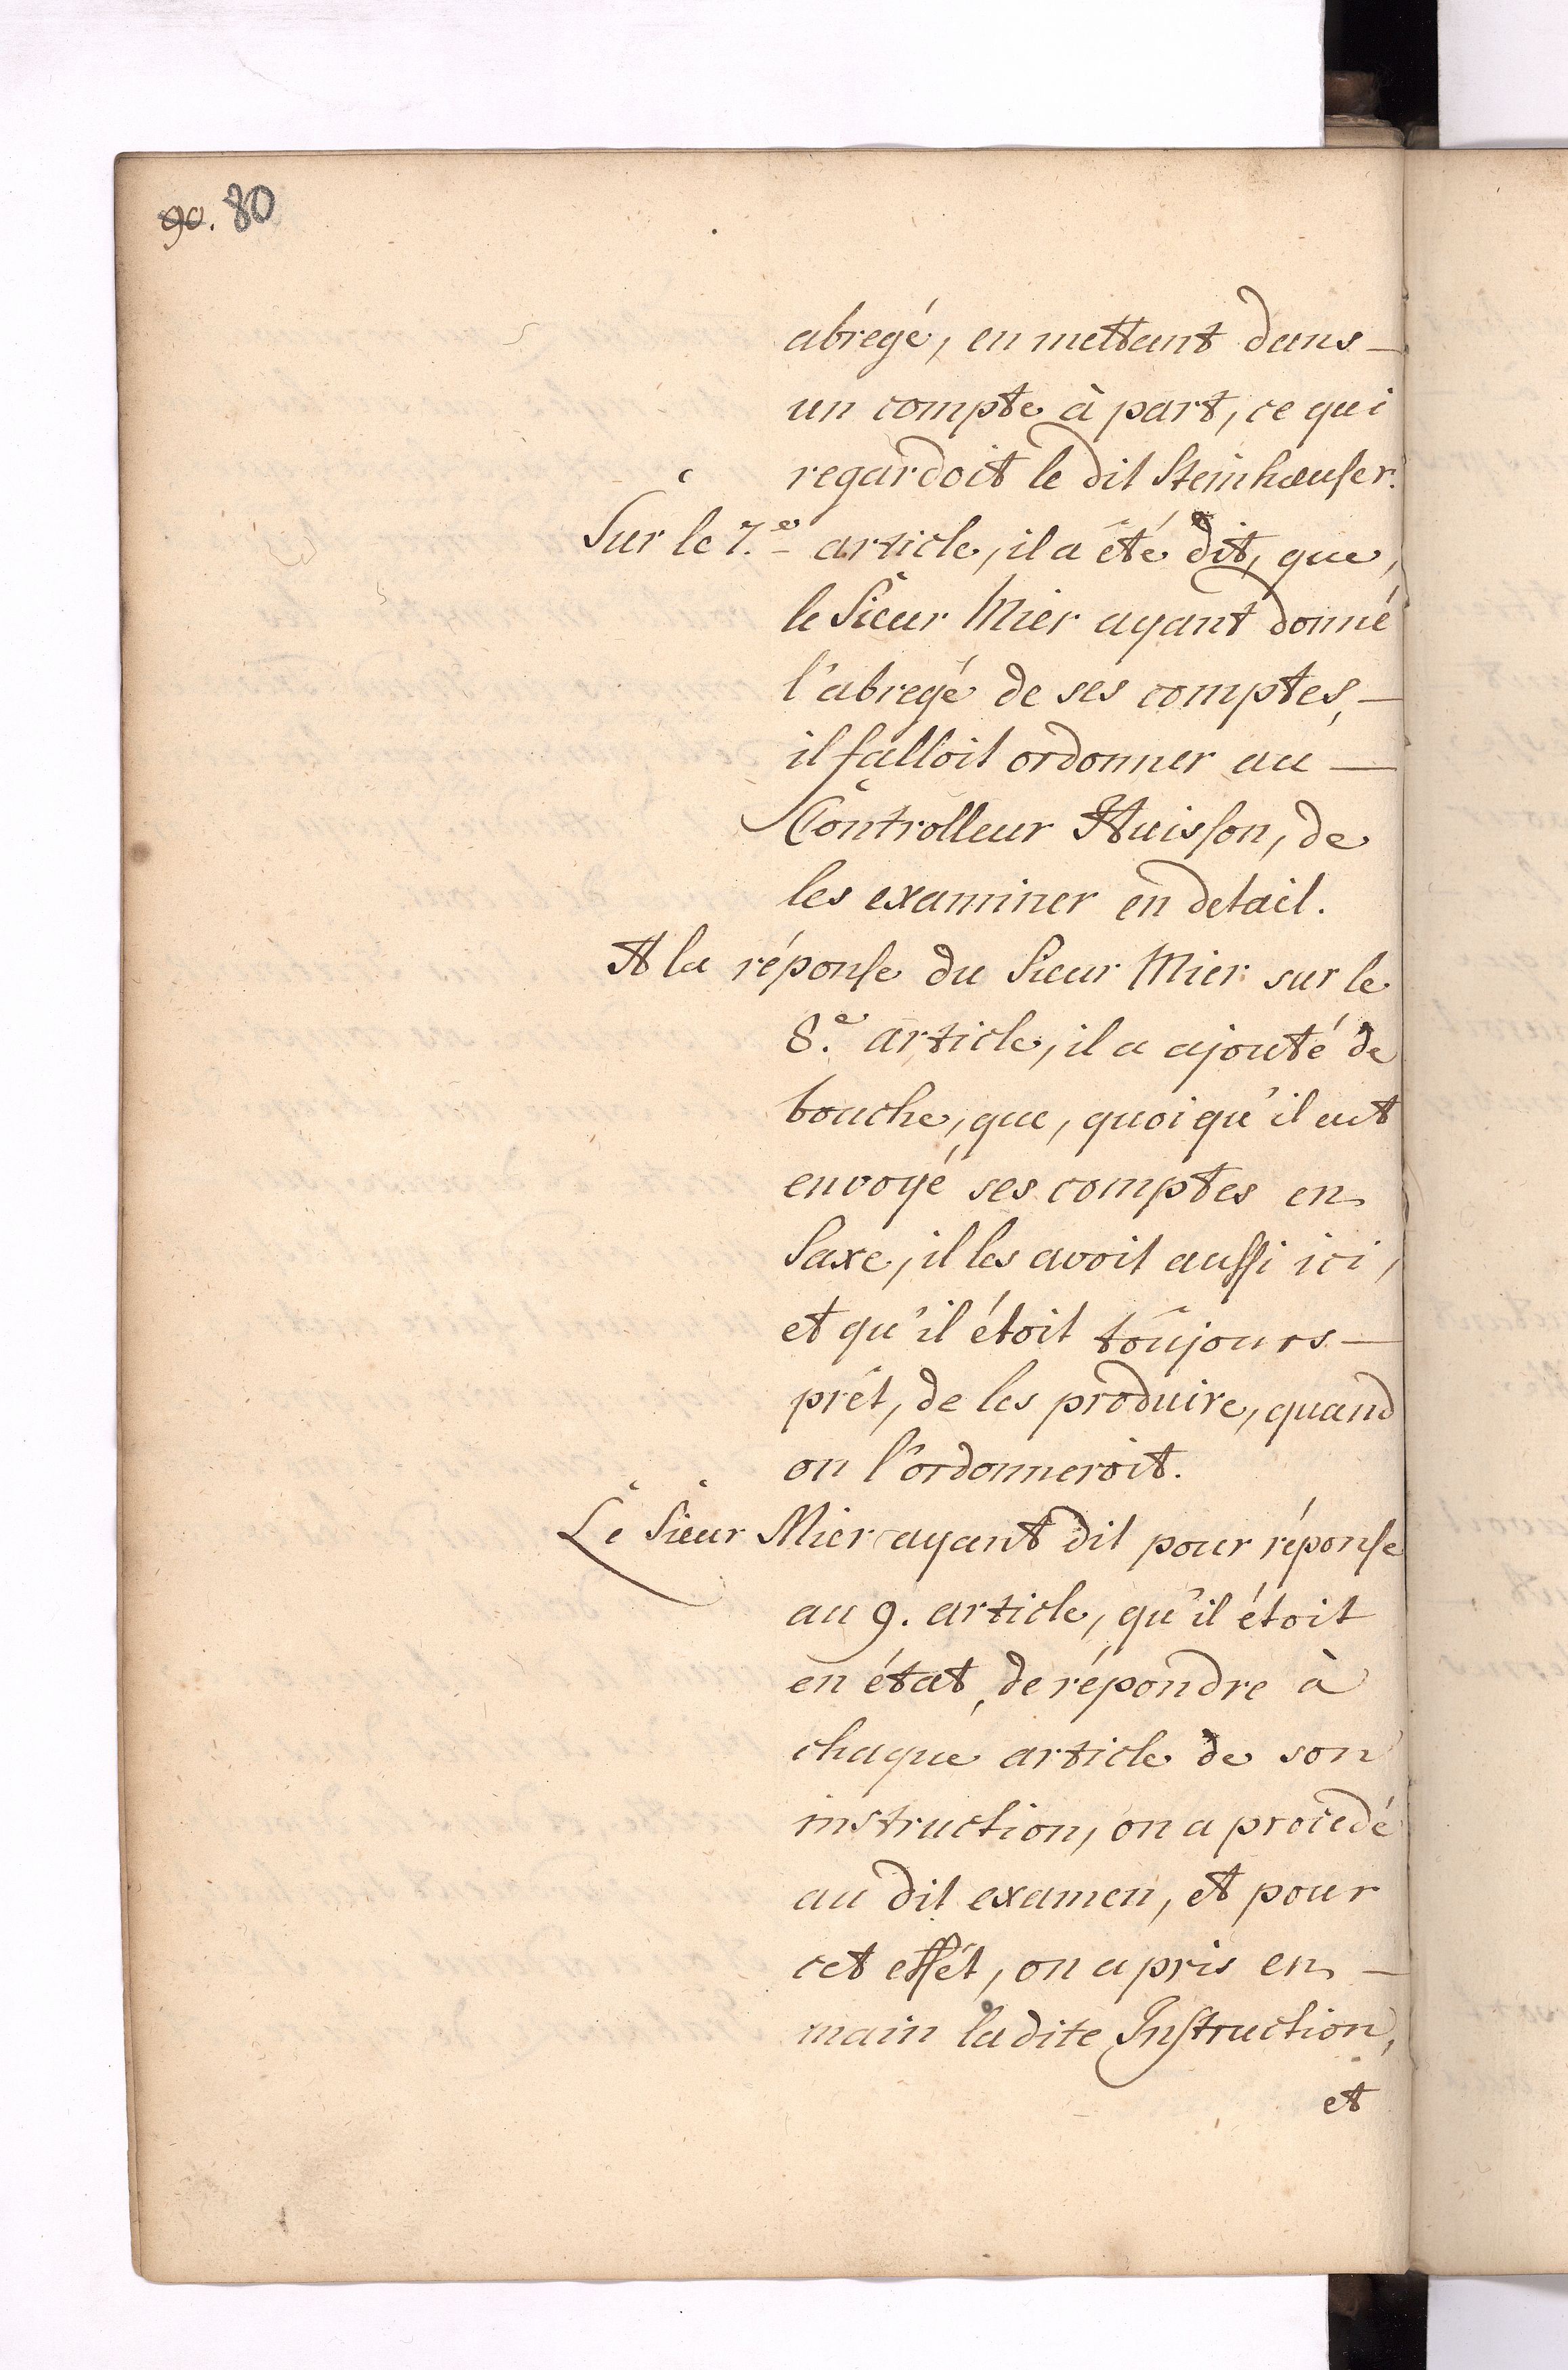 90. 80
abregé, en mettant dans
un compte à part, ce qui
regardoit le dit Steinhæuser.
Sur le 7.e article, il a été dit, que,
le Sieur Mier ayant donné
l'abregé de ses comptes,
il falloit ordonner au
Controlleur Huisson, de
les examiner en detail.
A la réponse du Sieur Mier sur le
8.e article, il a ajouté de
bouche, que, quoiqu'il eut
envoyé ses comptes en
Saxe, il les avoit aussi ici,
et qu'il étoit toûjours
prêt, de les produire, quand
on l'ordonneroit.
Le Sieur Mier ayant dit pour réponse
au 9. article, qu'il étoit
en état, de répondre à
chaque article de son
instruction, on a procedé
au dit examen, et pour
cet effét, on a pris en
main la dite Instruction,
et